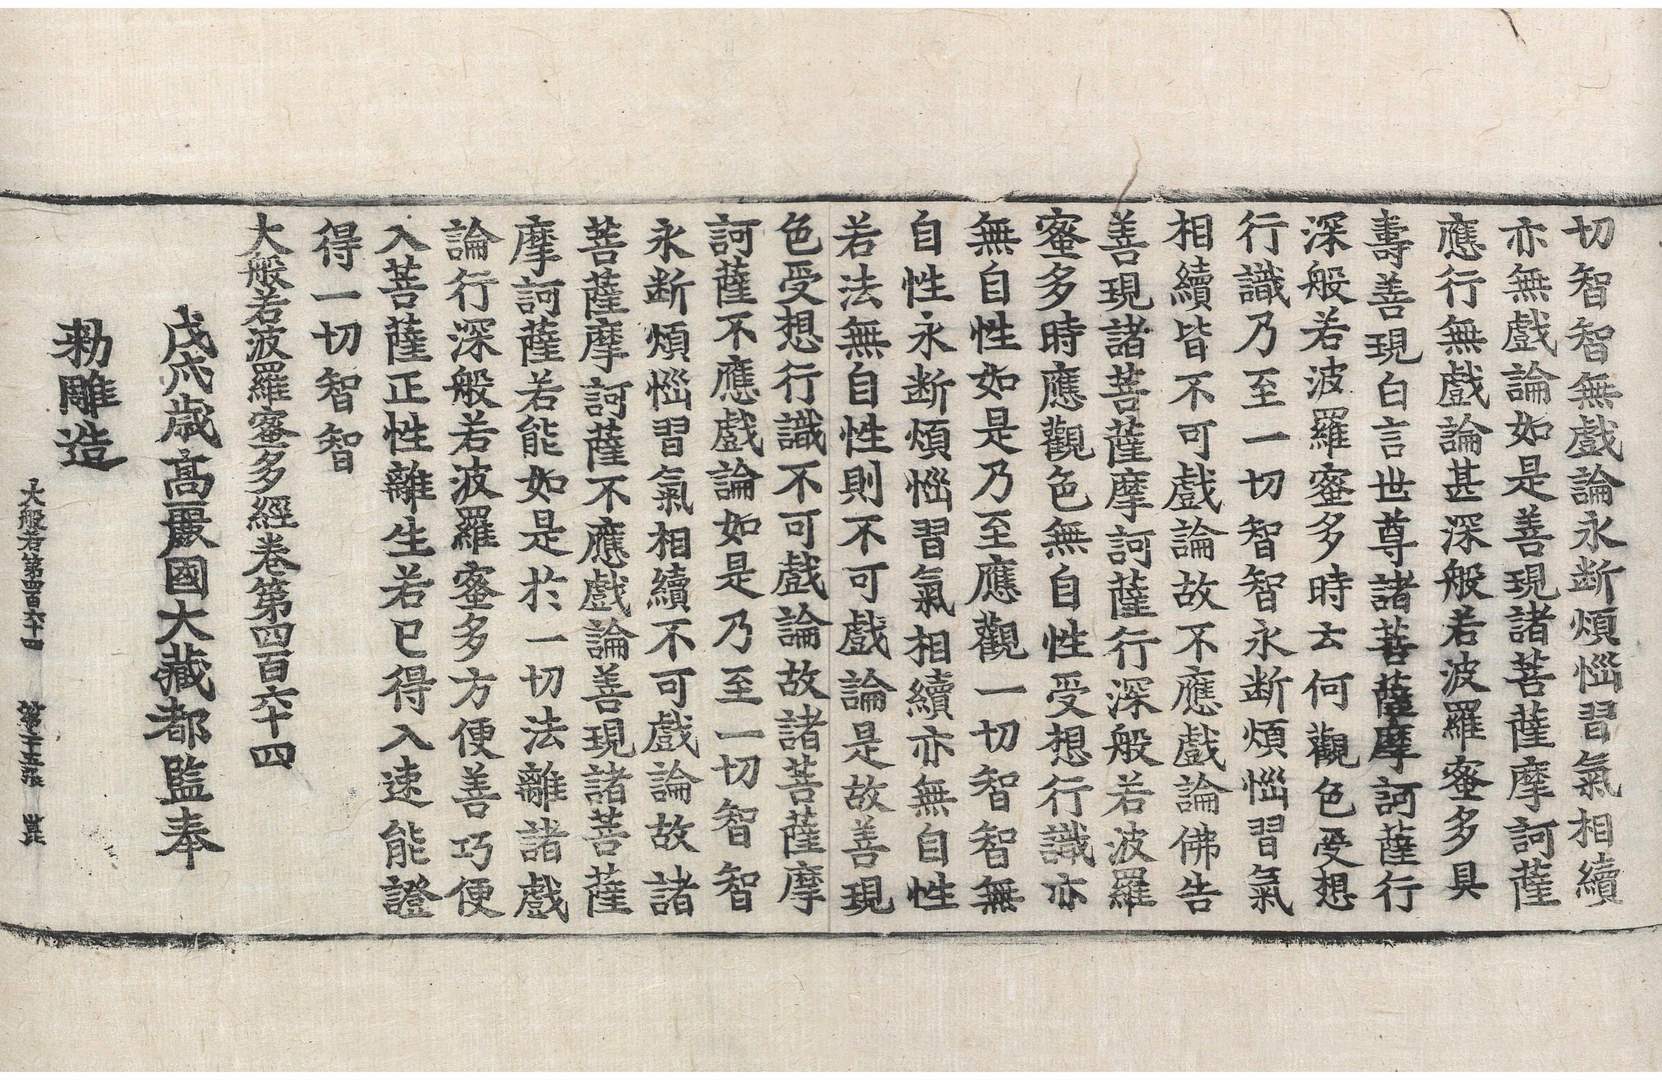 切智智無戲論永断煩惱習氣相續
亦無戲論如是善現諸菩薩摩訶薩
應行無戲論甚深般若波羅蜜多具
壽善現白言世尊諸菩薩摩訶薩行
深般若波羅蜜多時云何觀色受想
行識乃至一切智智永断煩惱習氣
相續皆不可戲論故不應戲論佛告
善現諸菩薩摩訶薩行深般若波羅
蜜多時應觀色無自性受想行識亦
無自性如是乃至應觀一切智智無
自性永断煩惱習氣相續亦無自性
若法無自性則不可戲論是故善現
色受想行識不可戲論故諸菩薩摩
訶薩不應戲論如是乃至一切智智
永断煩惱習氣相續不可戲論故諸
菩薩摩訶薩不應戲論善現諸菩薩
摩訶薩若能如是於一切法離諸戲
論行深般若波羅蜜多方便善巧便
入菩薩正性離生若已得入速能證
得一切智智
大般若波羅蜜多經卷第四百六十四
戊戌歳高麗國大藏都監奉
勑雕造
大般若第四百六十四 第二十五張 崑